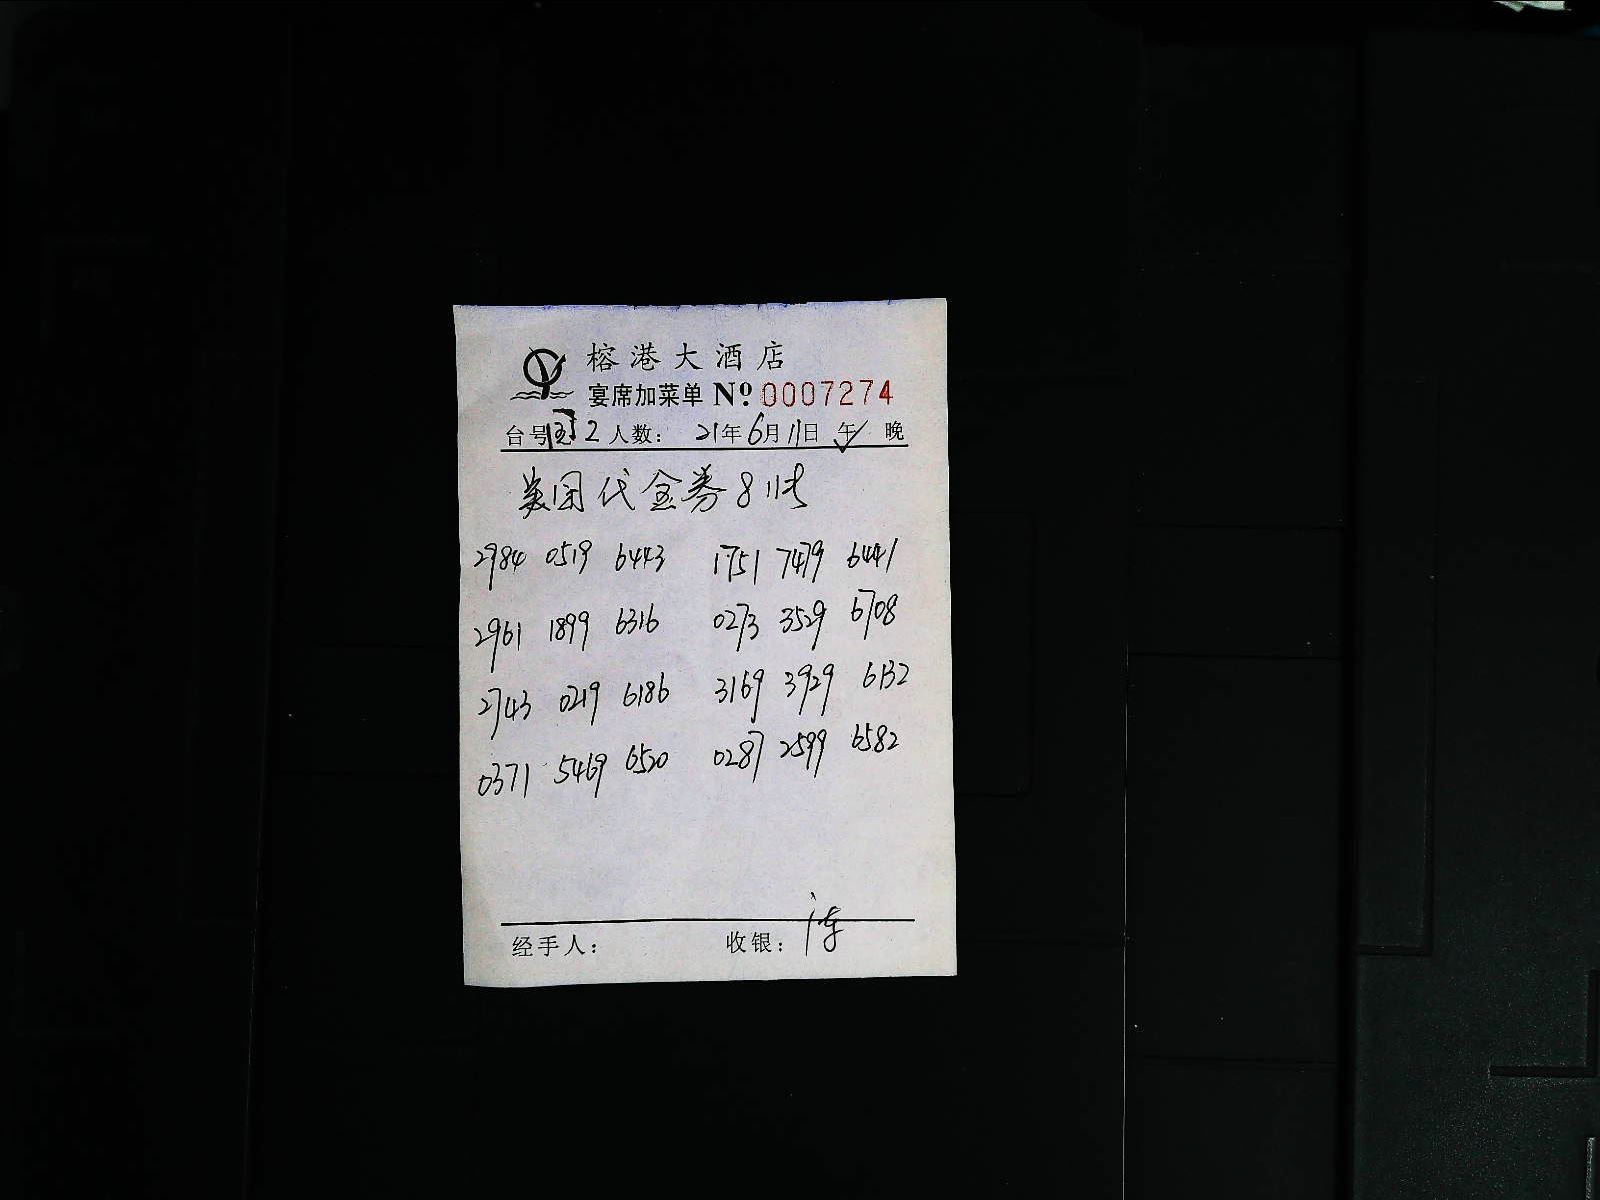 榕港大酒店
宴席加菜单 Nº 0007274
台号 2 人数: 21年6月11日 午✓ 晚
美团代金券8张
2984 0519 6443 1751 7479 6441
2961 1899 6316 0273 3529 6708
2743 0219 6186 3169 3929 6132
0371 5469 6520 0287 2599 6582
经手人: 收银: